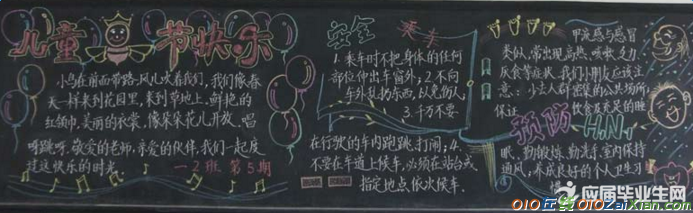 儿童节快乐
小鸟在前面带路,风儿吹着我们,我们像春
天一样来到花园里,来到草地上。鲜艳的
红领巾,美丽的衣裳,像朵朵花儿开放。唱
呀跳呀,敬爱的老师,亲爱的伙伴,我们一起度
过这快乐的时光。
一2班 第5期
安全 乘车
1.乘车时不把身体的任何
部位伸出车窗外;2.不向
车外乱扔东西,以免伤人;
3.千万不要
在行驶的车内跑跳、打闹;4.
不要在车道上候车,必须在站台或
指定地点依次候车.
甲流感与感冒
类似,常出现高热、咳嗽、乏力、
厌食等症状,我们小朋友应该注
意:少去人群密集的公共场所,
保证饮食及充足的睡
预防H1N1
眠、勤锻炼、勤洗手,室内保持
通风,养成良好的个人卫生习
惯
应届毕业生网
010在线010ZaiXian.com